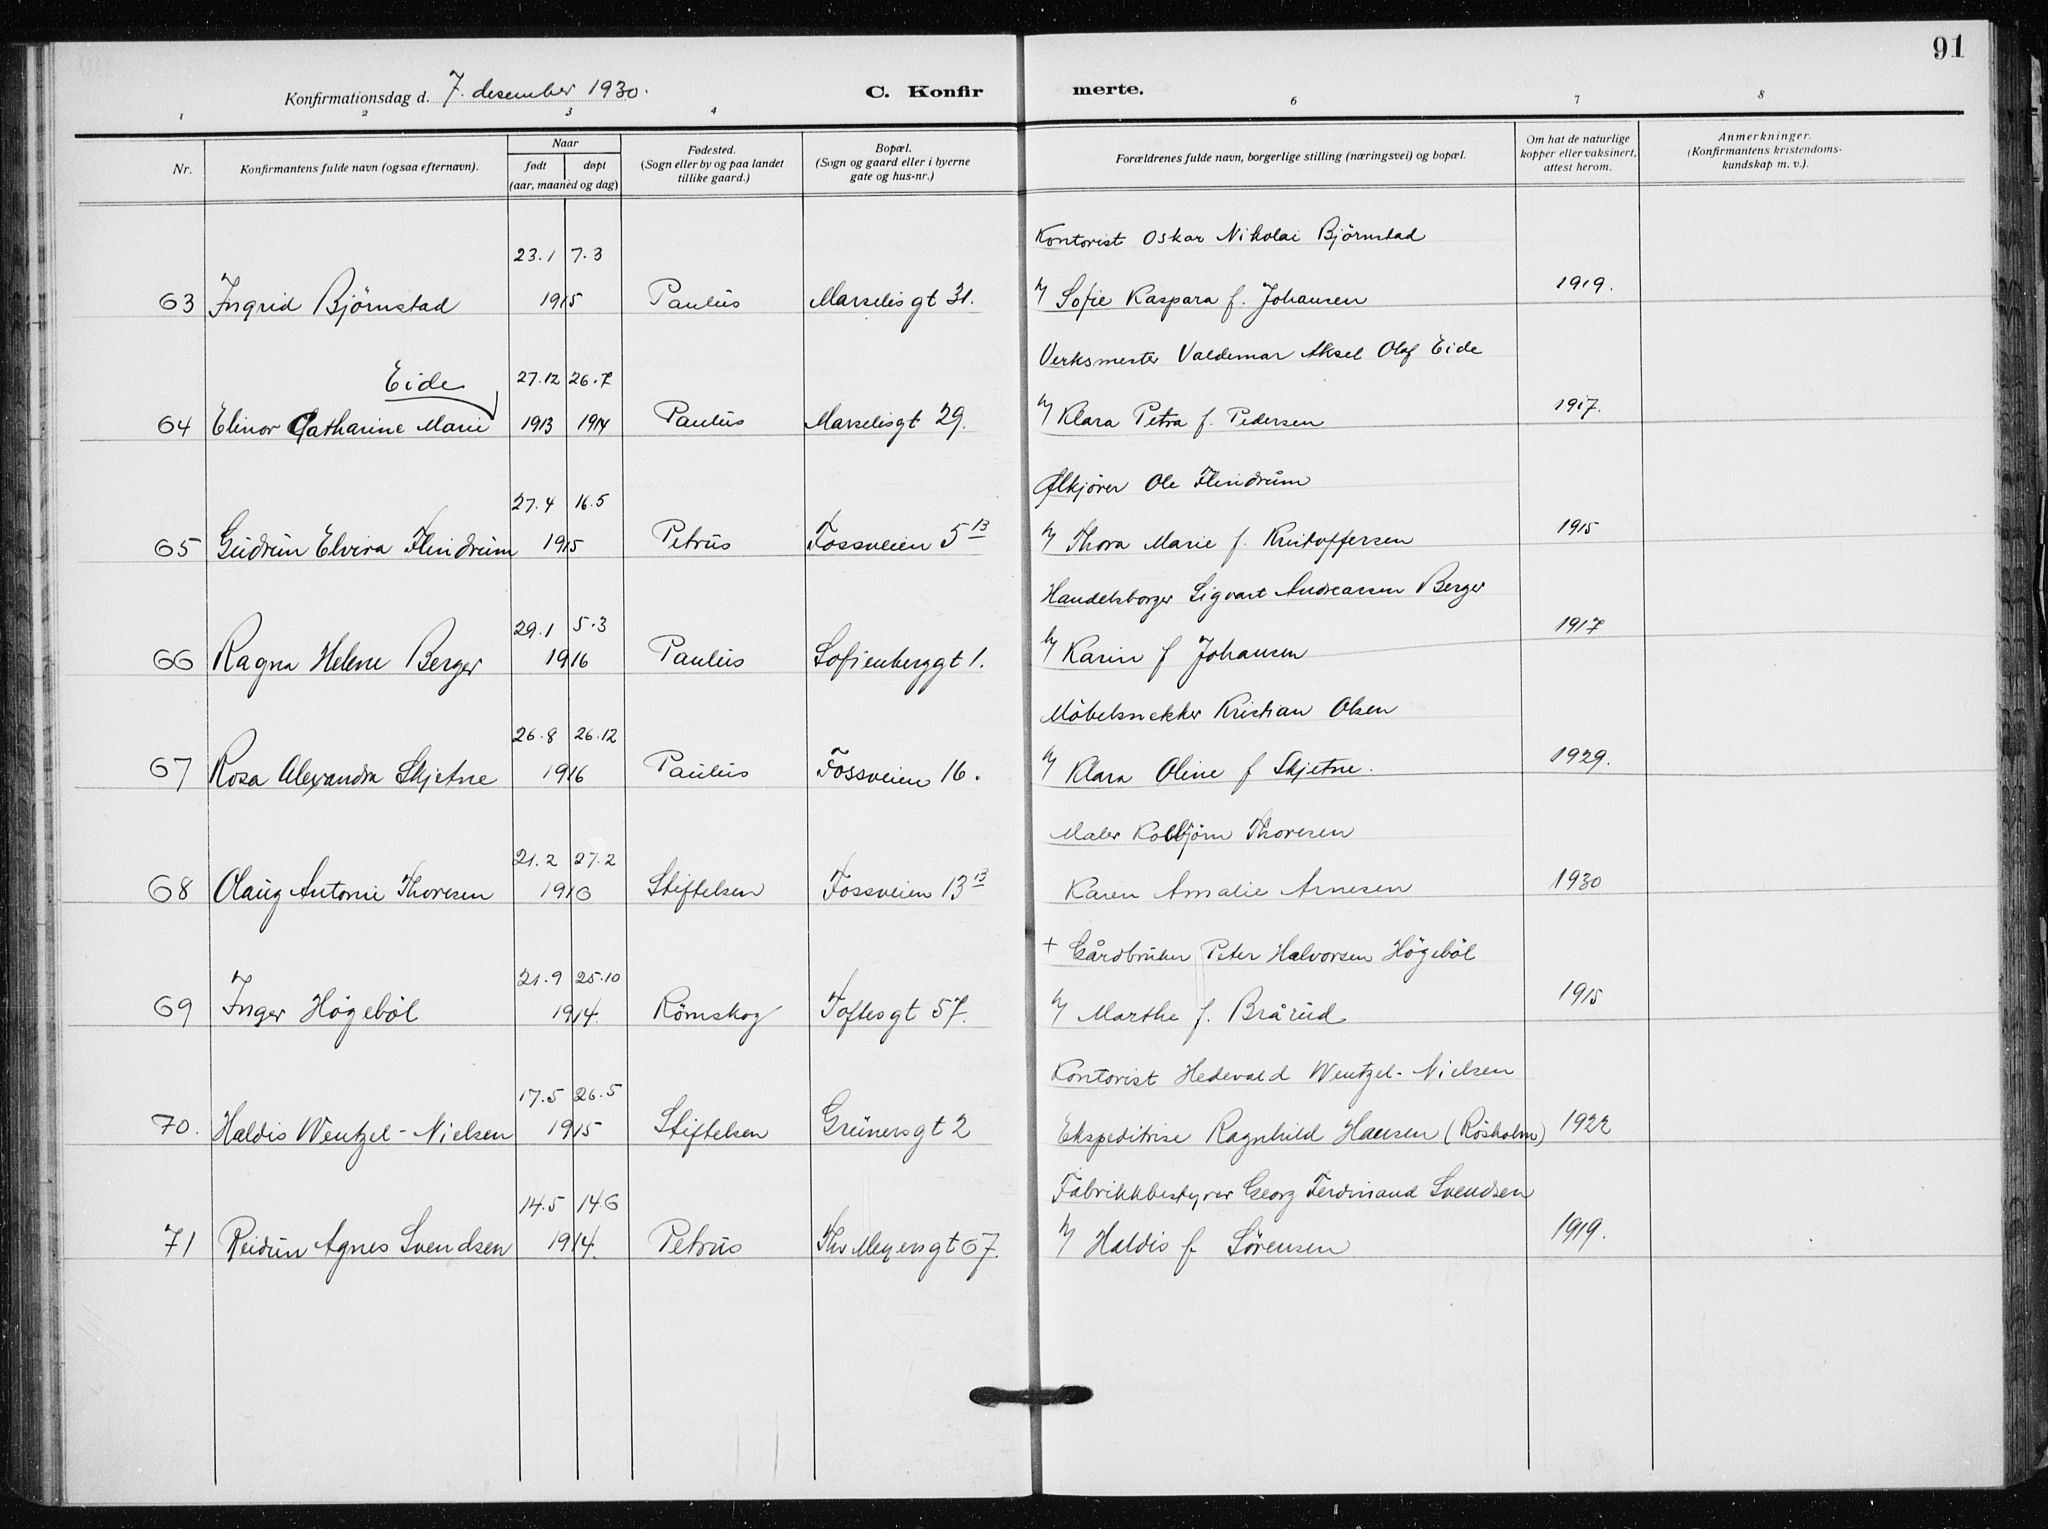 91
Konfirmationsdag d. 7. desember 1930. C. Konfir merte.
1 2 3 4 6 7 8
Nr. Konfirmantens fulde navn (ogsaa efternavn). Naar født døpt (aar, maaned og dag) Fødested. (Sogn eller by og paa landet tillike gaard.) Bopæl. (Sogn og gaard eller i byerne gate og hus-nr.) Forældrenes fulde navn, borgerlige stilling (næringsvei) og bopæl. Om hat de naturlige kopper eller vaksinert, attest herom. Anmerkninger. (Konfirmantens kristendomskundskap m. v.).
23.1 7.3 Kontorist Oskar Nikolai Björnstad
63 Ingrid Björnstad 1915 Paulus Marselisgt 31. Sofie Kaspara f. Johansen 1919.
Eide 27.12 26.7 Verksmester Valdemar Aksel Olaf Eide
64 Elinor Catharine Marie 1913 1914 Paulus Marselisgt 29. Klara Petra f. Pedersen 1917.
27.4 16.5 Ølkjører Ole Flindrum
65 Gudrun Elvira Flindrum 1915 Petrus Fossveien 5 13 Thora Marie f. Kristoffersen 1915
29.1 5.3 Handelsborger Sigvart Andreassen Berger
66 Ragna Helene Berger 1916 Paulus Sofienberggt 1. Karin f Johansen 1917
26.8 26.12 Möbelsnekker Kristian Olsen
67 Rosa Alexandra Skjetne 1916 Paulus Fossveien 16. Klara Oline f Skjetne. 1929.
21.2 27.2 Maler Kolbjörn Thoresen
68 Olaug Antonie Thoresen 1916 Stiftelsen Fossveien 13 13 Karen Amalie Arnesen 1930
21.9 25.10 + Gårdbruker Peter Halvorsen Högeböl
69 Inger Högeböl 1914. Römskog Toftesgt 57. Marthe f. Brårud 1915
17.5 26.5 Kontorist Hedevald Wentzel-Nielsen
70. Haldis Wentzel-Nielsen 1915 Stiftelsen Grünersgt 2 Ekspeditrise Ragnhild Hansen (Rösholm) 1922
14.5 14.6 Fabrikkbestyrer Georg Ferdinand Svendsen
71 Reidun Agnes Svendsen 1914. Petrus Thv Meyersgt 67. Haldis f. Sörensen 1919.